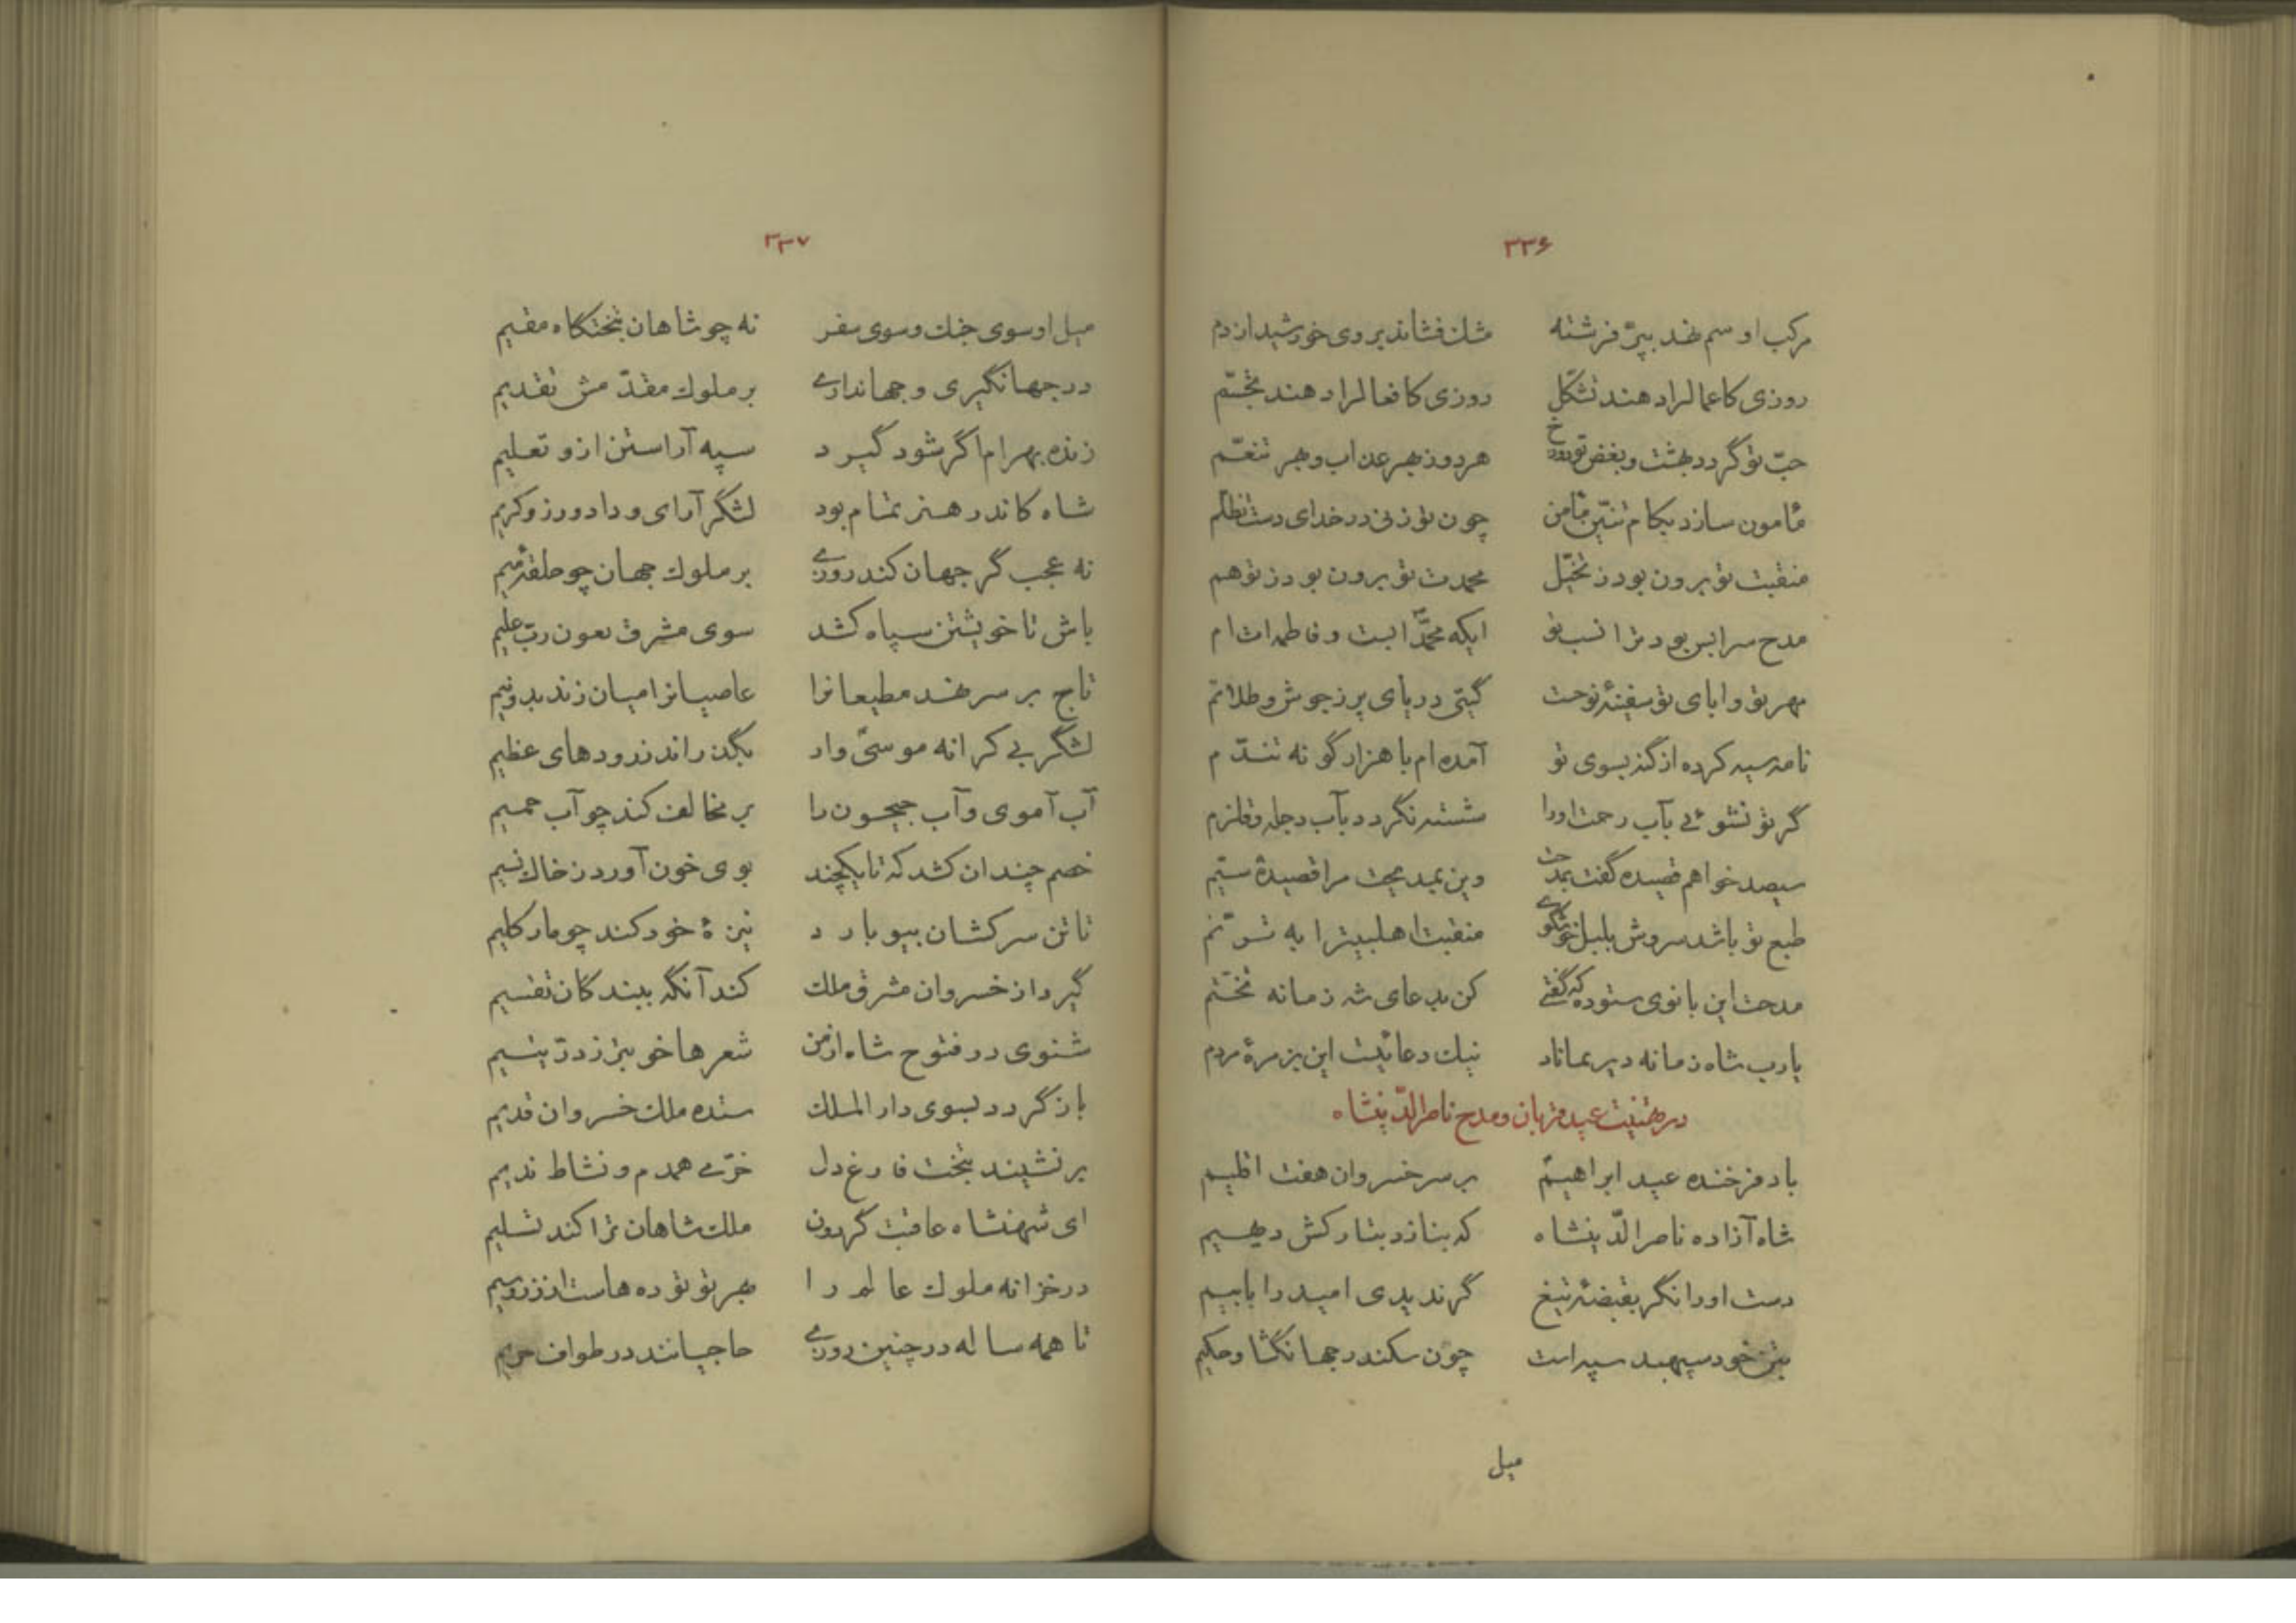 ۳۳۶
مرکب او سم نهد بپرّ فرشته مشك فشاند بروی خورشید از دم
روزی کاعمالرا دهند تشکّل روزی کافعالرا دهند تجسّم
حبّ تو گردد بهشت و بغض تو دوزخ هر دو ز بهر عذاب و بهر تنعّم
مأمون سازد بکام تنّین مأمن چون تو زنی در خدای دست تظلّم
منقبت تو برون بود ز تخیّل محمدت تو برون بود ز توهم
مدح سرا بس بود ترا نسب تو ایکه محمّد ابست و فاطمه ات ام
مهر تو و ابای تو سفینهٔ نوحست گیتی دریای پر ز جوش و طلاطم
نامه سیه کرده از گنه بسوی تو آمده ام با هزار گونه تندّم
گر تو نشوئی بآب رحمت اورا شسته نگردد بآب دجله و قلزم
سیصد خواهم قصیده گفت بمدحت وین بمدیحت مرا قصیدهٔ ستیم
طبع تو باشد سروش بلبل خوشگوی منقبت اهلبیترا به ترنّم
مدحت این بانوی ستوده که گفتی کن بدعای شه زمانه تختّم
یارب شاه زمانه دیر بماناد نیك دعائیست این بزمرهٔ مردم
در تهنیت عید قربان و مدح ناصرالدّینشاه
باد فرخنده عید ابراهیم بر سر خسروان هفت اقلیم
شاه آزاده ناصرالدّینشاه که بنازد بتارکش دیهیم
دست اورا نگر بقبضهٔ تیغ گر ندیدی امید را با بیم
بتن خود سپهبد سپه است چون سکندر جهانگشا و حکیم
میل
۳۳۷
میل او سوی جنك و سوی سفر نه چو شاهان بتختگاه مقیم
در جهانگیری و جهانداری بر ملوك مقدّمش تقدیم
زنده بهرام اگر شود گیرد سپه آراستن ازو تعلیم
شاه کاندر هنر تمام بود لشگر آرای و دادورز و کریم
نه عجب گر جهان کند روزی بر ملوك جهان چو حلقهٔ میم
باش تا خویشتن سپاه کشد سوی مشرق بعون ربّ علیم
تاج بر سر نهد مطیعانرا عاصیانرا میان زند بدو نیم
لشگر بی کرانه موسیّ وار بگذراند ز رودهای عظیم
آب آموی و آب جیحون را بر مخالف کند چو آب حمیم
خصم چندان کشد که تا یکچند بوی خون آورد ز خاك نسیم
تا تن سرکشان بیوبارد نیزهٔ خود کند چو مار کلیم
گیرد از خسروان مشرق ملك کند آنگه ببندگان تقسیم
شنوی در فتوح شاه از من شعرها خوبتر ز درّ یتیم
باز گردد بسوی دار الملك ستده ملك خسروان قدیم
بر نشیند بتخت فارغ دل خرّمی همدم و نشاط ندیم
ای شهنشاه عاقبت گردون ملك شاهان ترا کند تسلیم
در خزانه ملوك عالم را بهر تو توده هاست از زر و سیم
تا همه ساله در چنین روزی حاجیانند در طواف حریم